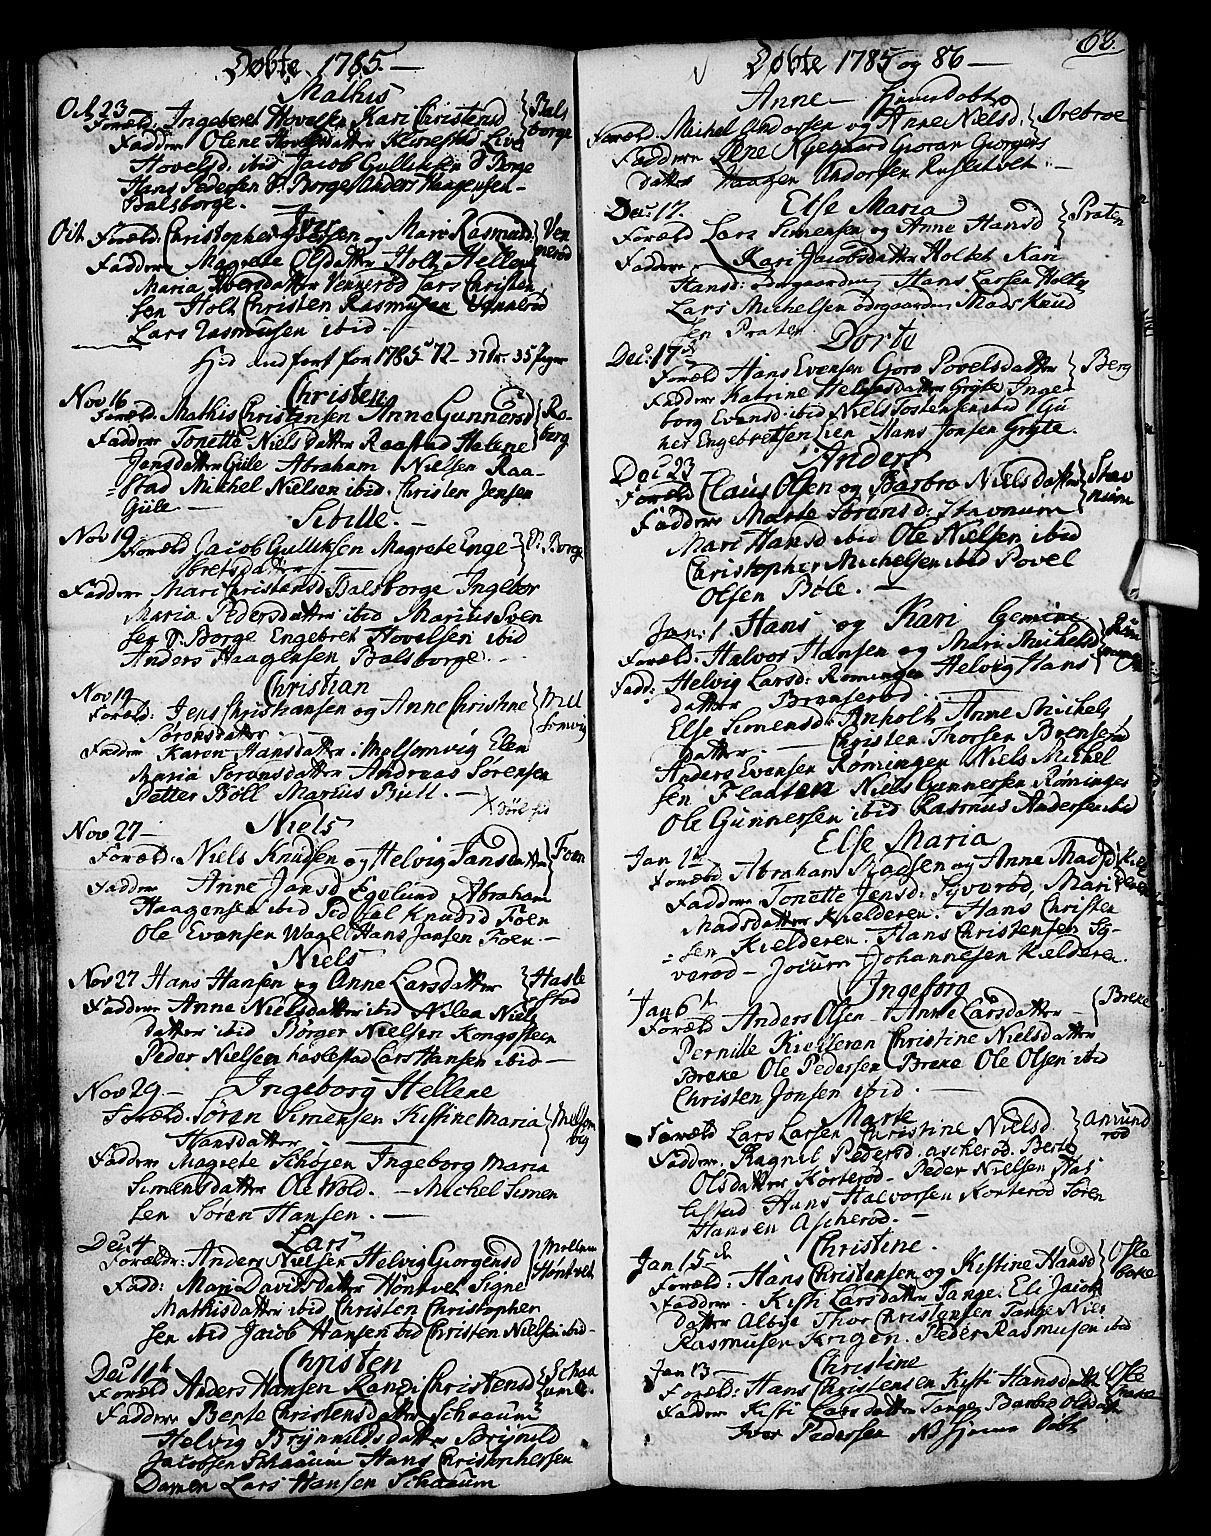 Døbte 1785. —
Mathis
Oct 23
Foræld. Ingebret Hovelsen Kari Christensd
Bals
borge
Faddere Olene Hovelsdatter Live
Hovelsd. ibid Jacob Gulliksen P Borge
Hans Pedersen P. Borge Anders Haagensen —
Balsborge.
Iver
Oct Foræld. Christopher Iversen og Mari Rasmusd
Ven
nerød
Faddere Magrete Olsdatter Holt Hellene
Maria Iversdatter Vennerød Lars Christen
sen Holt Christen Rasmusen Vennerød
Lars Rasmusen ibid. —
Hid indført for 1785 72 — 37 Dr. 35 Piger
Christen
Nov 16
Foræld. Mathis Christensen Anne Gunnersd
Ro
berg
Faddere Tonette Nielsdatter Raastad Helene
Jensdatter Güle Abraham Nielsen Raa-
stad Michel Nielsen ibid. Christen Jensen
Güle —
Sibille. —
Nov 19
Foræld Jacob Gulliksen Magrete Enge-
P. Borge
bretsdatter —
Faddere Mari Christensd Balsborge Ingebor
Maria Pedersdatter ibid Marius Sven
sen P. Borge Engebret Hovelsen ibid
Anders Haagensen Balsborge. —
Christian
Nov 19
Foræld: Jens Christiansen og Anne Christine
Mel
somvig
Sørensdatter
Faddere Karen Hansdatter Melsomvig Elen
Maria Sørensdatter Andreas Sørensen
Petter Böll Marius Bull. —
Niels
Nov 27 —
Foræld: Niels Knudsen og Helvig Jansdatter
Foen
Faddere Anne Jansd Egelund Abraham
Haagensen ibid Knudsd Foen
Ole Evensen Wagl. Hans Jansen Foen. —
Niels
Nov 27 Hans Hansen og Anne Larsdatter
Hasle
stad
Faddere Anne Nielsdatter ibid Niels
datter ibid Börger Nielsen Kongssteen
Peder Nielsen Haslestad Lars Hansen ibid —
Nov 29 — Ingeborg Hellene
Foræld. Søren Simensen Kistine Maria
Melsom
vig
Hansdatter —
Faddere Magrete Schøjen Ingeborg Maria
Simensdatter Ole Wold. — Michel Simen
sen Søren Hansen. —
Lars
Dec. 4
Foræld: Anders Nielsen Helvig Giorgensd
Mellem
Höntvet
Fadd: Mari Davidsdatter Höntvet Signe
Mathisdatter ibid Christen Christopher
sen ibid Jacob Hansen ibid Christen Nielsen ibid —
Christen
Dec 11t
Foræld Anders Hansen Randi Christensd
Schaa
um
Faddere Berte Christensdatter Schaaum
Helvig Brynnildsdatter Brynild
Jacobsen Schaaum Hans Christophersen
Damen Lars Hansen Schaaum
68.
Døbte 1785 og 86 —
Anne — hjemedøbt
Foræld. Michel Andersen og Anne Nielsd.
Orebroe
Faddere Lene Nyegaard Gioran Giorgens
datter Haagen Andersen
Dec. 17.
Else Maria
Foræld Lars Simensen og Anne Hansd
Præsten
Faddere Kari Jacobsdatter Holtet Kari
Hansd: ødegaarden Hans Larsen Holtet
Lars Michelsen ødegaarden Mads Knud
sen Præsten
Dorte
Dec. 17
Foræld Hans Evensen Goro Povelsdatter
Berg
Faddere Katrine Helgesdatter Gryte Inge-
borg Evensd ibid Niels Tostensen ibid
Engebretsen Lien Hans Jonsen Gryte.
Anders
Dec 23
Foræld Claus Olsen og Barbro Nielsdatter
Stav
num
Faddere Marte Sørensd: Stavnum
Mari Hansd ibid Ole Nielsen ibid
Christopher Michelsen ibid Povel
Olsen Böle. —
Jan. 1. Hans og Kari Gemine
Foræld: Halvor Hansen og Mari Michelsd
Röm
mingen
Fadd: Helvig Larsd: Römingen Helvig Hans
datter Brænserød. —
Else Simensd: Anholt Anne Michels
datter — Christen Thorsen Brenserød
Anders Evensen Romingen Niels Michel
sen Flaaten Niels Gunnersen Rømingen
Ole Gunnersen ibid Rasmus Andersen ibid
Else Maria
Jan 1t
Foræld Abraham Madsen og Anne Madsd
Kiel
deren
Faddere Tonette Jensd: Syverød, Mari
Madsdatter Kielderen. Hans Christen
sen Kielderen. Hans Christensen Sy-
verød — Jocum Johannesen Kielderen.
Ingeborg
Jan 6t
Foræld Anders Olsen — Anne Larsdatter —
Breke
Pernille Kielleran Christine Nielsdatter
Breke Ole Pedersen Breke Ole Olsen ibid
Christen Jonsen ibid. —
Marte
Foræld Lars Larsen Christine Nielsd
Anvund
rød
Faddere Ragnil Pedersd. ascherød. Berte
Olsdatter Korterød. Peder Nielsen Has
lestad Hans Halvorsen Korterød Søren
Hansen Ascherød. —
Christine.
Jan 15 d
Foræld: Hans Christensen og Kistine Hansd
Ofle
bake
Faddere. Kisti Larsdatter Tange. Eli Jacobs
datter Albue Thor Christensen Tange Niels
Rasmusen Krigen. Peder Rasmusen ibid
Jan 13 — Christine
Foræld: Hans Christensen Kisti Hansdatter
Ofle
bake
Faddere Kisti Larsdatter Tange Barbro Olsdatter
Iver Pedersen NB hjemme Døbt